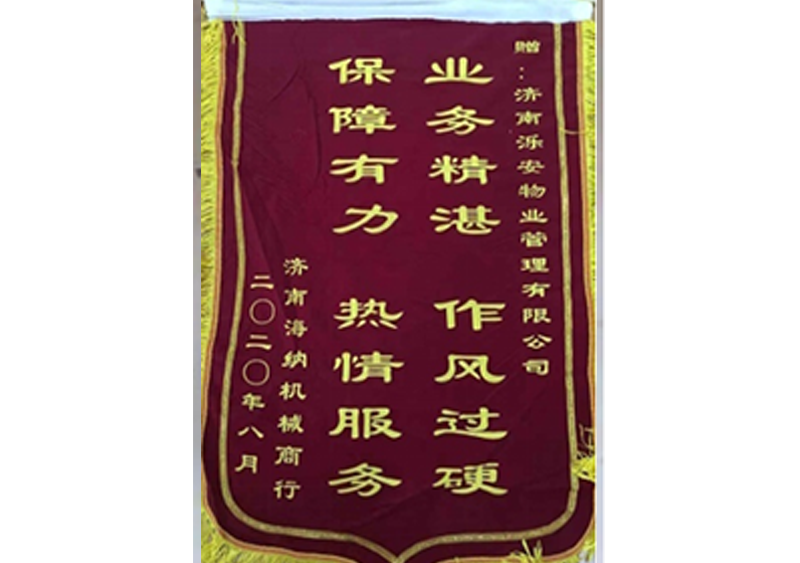 赠：济南泺安物业管理有限公司
业务精湛 作风过硬
保障有力 热情服务
济南海纳机械商行
二〇二〇年八月